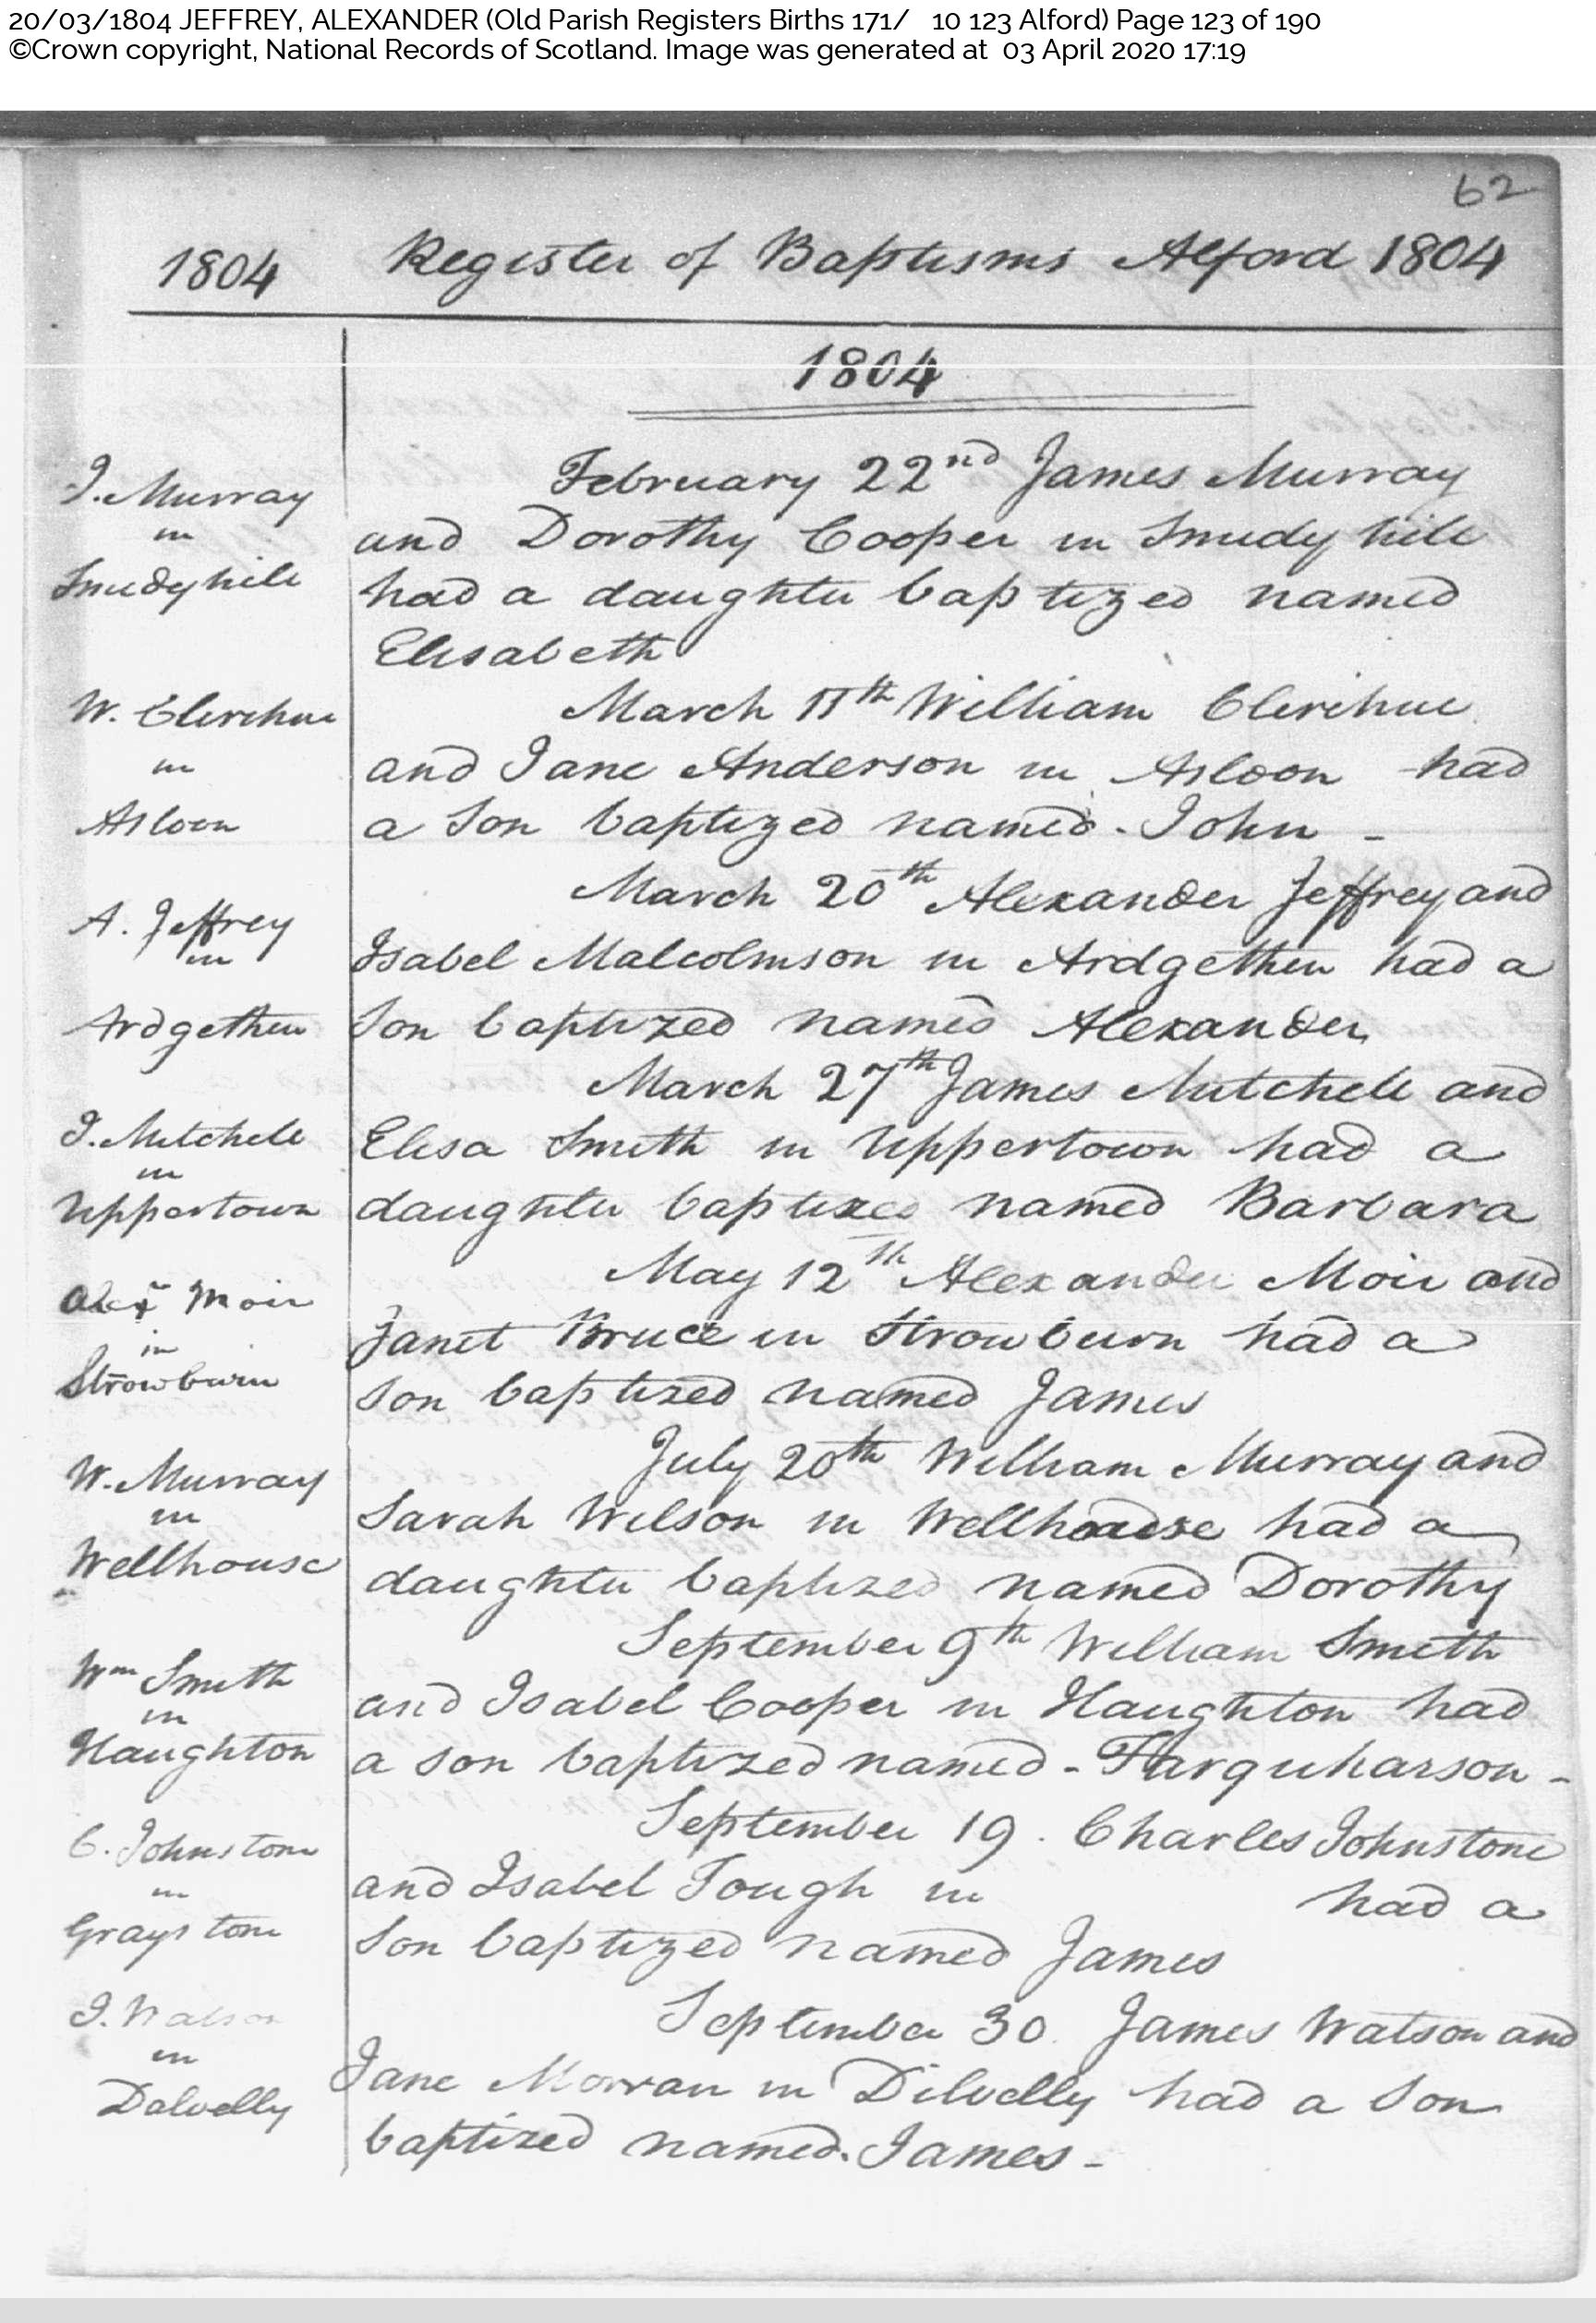 20/03/1804 JEFFREY, ALEXANDER (Old Parish Registers Births 171/ 10 123 Alford) Page 123 of 190
©Crown copyright, National Records of Scotland. Image was generated at 03 April 2020 17:19
62
1804 Register of Baptisms Alford 1804
1804
J. Murray
in
Smidyhill
February 22nd James Murray
and Dorothy Cooper in Smidy hill
had a daughter baptized named
Elisabeth
W. Clerihue
in
Asloon
March 11th William Clerihue
and Jane Anderson in Asloon had
a Son baptized named - John -
A. Jeffrey
in
Ardgethen
March 20th Alexander Jeffrey and
Isabel Malcolmson in Ardgethen had a
Son baptized named Alexander
J. Mitchell
in
Uppertown
March 27th James Mitchell and
Elisa Smith in Uppertown had a
daughter baptized named Barbara
Alexr Moir
in
Strowburn
May 12th Alexander Moir and
Janet Bruce in Strowburn had a
Son baptized named James
W. Murray
in
Wellhouse
July 20th William Murray and
Sarah Wilson in Wellhouse had a
daughter baptized named Dorothy
Wm Smith
in
Haughton
September 9th William Smith
and Isabel Cooper in Haughton had
a son baptized named - Farquharson -
C. Johnstone
in
Graystone
September 19. Charles Johnstone
and Isabel Tough in had a
Son baptized named James
J. Watson
in
Dalvelly
September 30. James Watson and
Jane Morran in Dilvelly had a Son
baptized named. James -